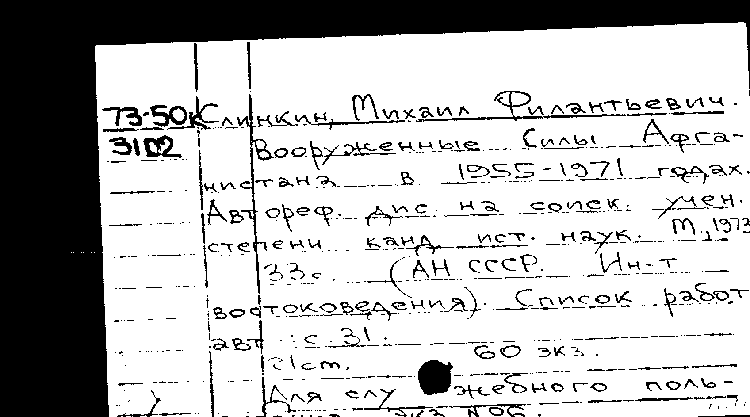 73-50к Слинкин, Михаил Филантьевич.
3102 Вооруженные Силы Афга-
нистана в 1955-1971 годах.
Автореф. дис. на соиск. учен.
степени канд. ист. наук. М., 1973
33с. (АН СССР. Ин-т
востоковедения). Список работ
авт.: с. 31.
60 экз.
Для служебного поль-
экз. №